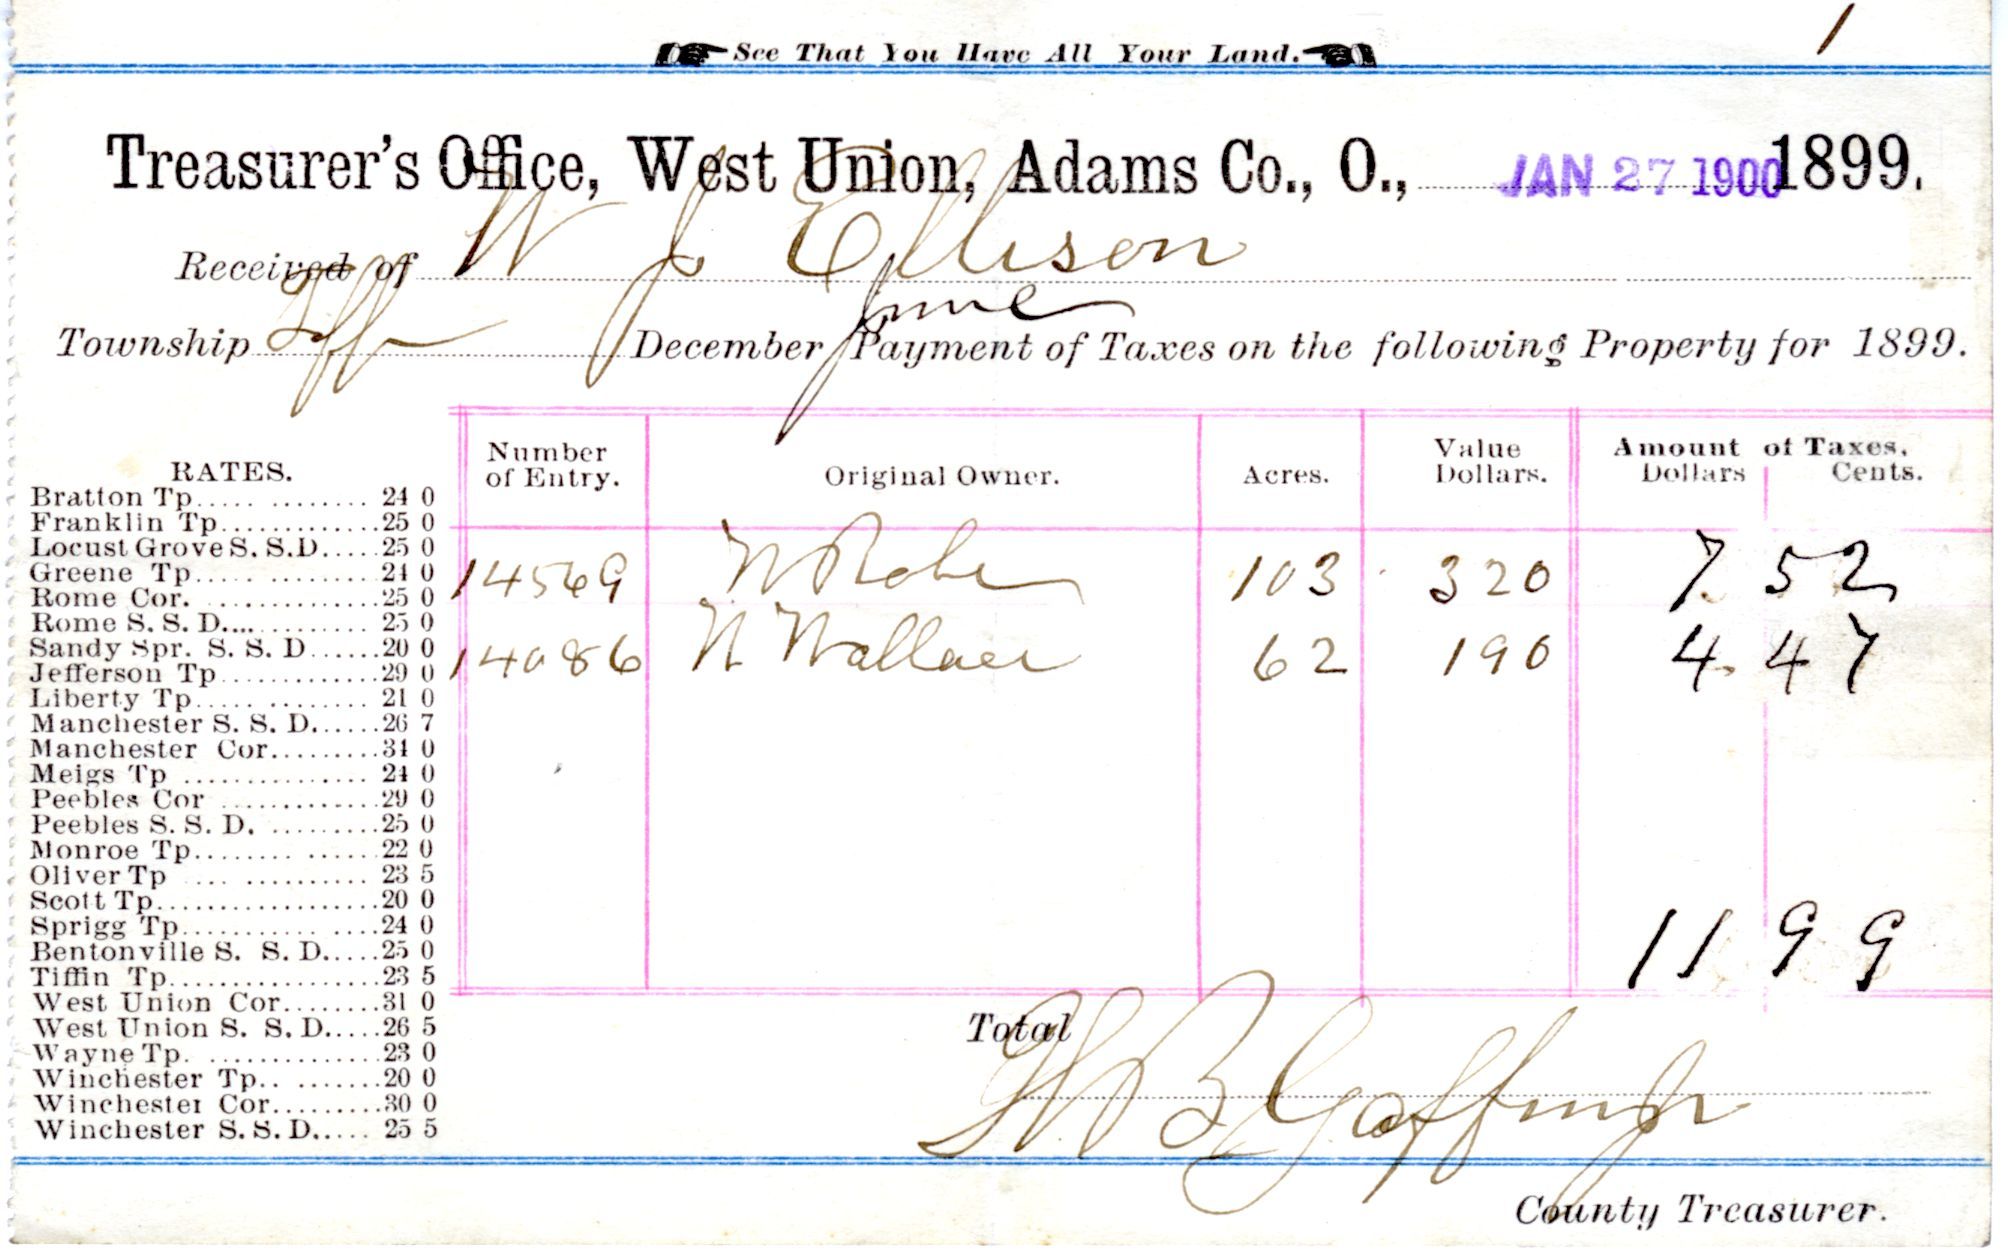 1
See That You Have All Your Land.
Treasurer's Office, West Union, Adams Co., O., JAN 27 1900 1899.
Received of W J Ellison
June
Township Tiffin December Payment of Taxes on the following Property for 1899.
Number of Entry. Original Owner. Acres. Value Dollars. Amount of Taxes. Dollars Cents.
14569 N 103 320 7. 52
14086 N Wallace 62 190 4. 47
11 99
RATES.
Bratton Tp..... ......... 24 0
Franklin Tp.............25 0
Locust Grove S. S.D.....25 0
Greene Tp..... ......... 24 0
Rome Cor. .............25 0
Rome S. S. D.............25 0
Sandy Spr. S. S. D......20 0
Jefferson Tp.............29 0
Liberty Tp..... ......... 21 0
Manchester S. S. D......26 7
Manchester Cor.........34 0
Meigs Tp ............... 24 0
Peebles Cor .............29 0
Peebles S. S. D. .........25 0
Monroe Tp........ ......22 0
Oliver Tp .... .......... 23 5
Scott Tp..................20 0
Sprigg Tp........... ....24 0
Bentonville S. S. D.....25 0
Tiffin Tp.................23 5
West Union Cor........31 0
West Union S. S. D.....26 5
Wayne Tp. ..............23 0
Winchester Tp.. .......20 0
Winchester Cor.........30 0
Winchester S. S. D..... 25 5
Total
County Treasurer.